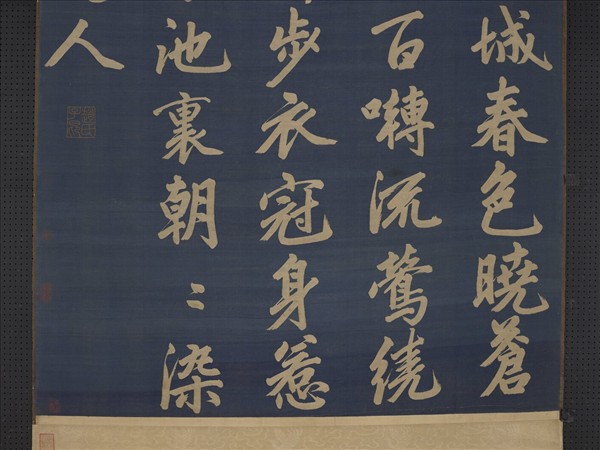 城春色曉蒼
百囀流鶯繞
步衣冠身惹
池裏朝〻染
人